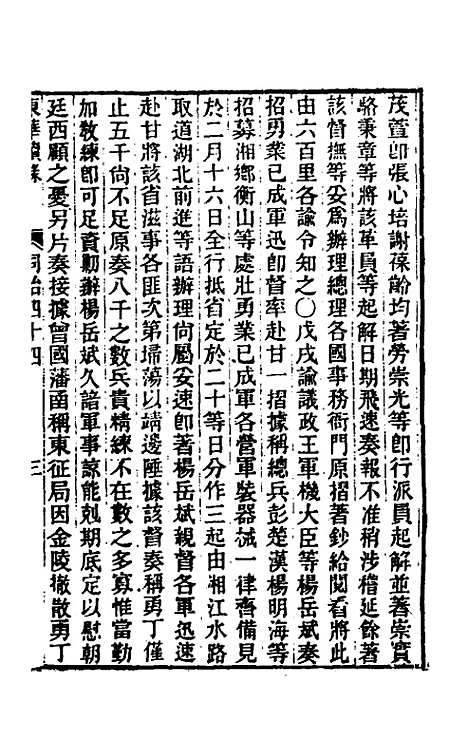 茂萱卽張心培謝葆齡均著勞崇光等卽行派員起解並著崇實
駱秉章等將該革員等起解日期飛速奏報不准稍涉稽延餘著
該督撫等妥爲辦理總理各國事務衙門原摺著鈔給閱看將此
由六百里各諭令知之〇戊戌諭議政王軍機大臣等楊岳斌奏
招勇業已成軍迅卽督率赴甘一摺據稱總兵彭楚漢楊明海等
招募湘鄉衡山等處壯勇業已成軍各營軍裝器械一律齊備見
於二月十六日全行抵省定於二十等日分作三起由湘江水路
取道湖北前進等語辦理尙屬妥速卽著楊岳斌親督各軍迅速
赴甘將該省滋事各匪次第埽蕩以靖邊陲據該督奏稱勇丁僅
止五千尙不足原奏八千之數兵貴精練不在數之多寡惟當勤
加敎練卽可足資勦辦楊岳斌久諳軍事諒能剋期底定以慰朝
廷西顧之憂另片奏接據曾國藩函稱東征局因金陵撤散勇丁
東華續錄
同治四十四
三